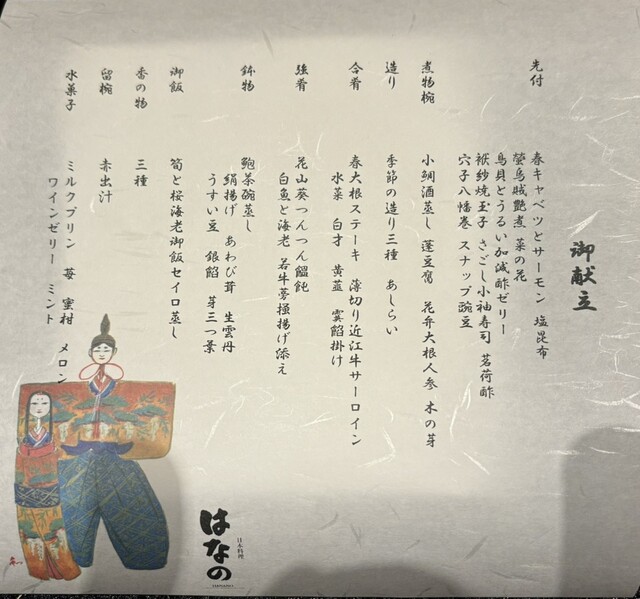 御献立
先付
春キャベツとサーモン 塩昆布
螢烏賊艶煮 菜の花
鳥貝とうるい加減酢ゼリー
袱紗焼玉子 さごし小袖寿司 茗荷酢
穴子八幡巻 スナップ豌豆
煮物椀
小鯛酒蒸し 蓬豆腐 花弁大根人参 木の芽
造り
季節の造り三種 あしらい
合肴
春大根ステーキ 薄切り近江牛サーロイン
水菜 白才 黄韮 霙餡掛け
強肴
花山葵つんつん饂飩
白魚と海老 若牛蒡極揚げ添え
鉢物
鮑茶碗蒸し
絹揚げ あわび茸 生雲丹
うすい豆 銀餡 芽三つ葉
御飯
筍と桜海老御飯セイロ蒸し
香の物
三種
留椀
赤出汁
水菓子
ミルクプリン 苺 蜜柑 メロン
ワインゼリー ミント
日本料理
はなの